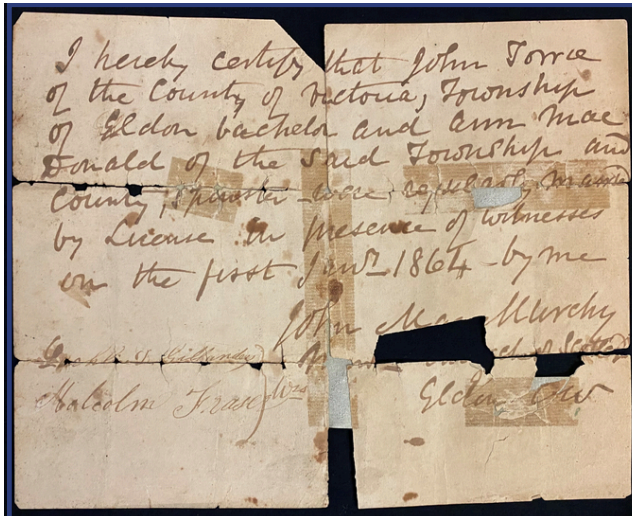 I hereby certify that John Torrie
of the County of Victoria, Township
of Eldon bachelor and Ann Mac
Donald of the said Township and
County, Spinster were regularly
by License in presence of witnesses
on the first Jany 1864 by me
John Mac Murchy
Malcolm Fraser Wits
Eldon CW